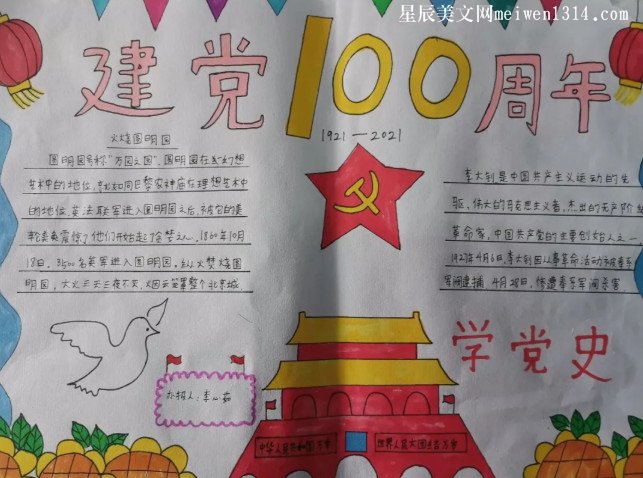 星辰美文网meiwen1314.com
建党100周年
1921—2021
火烧圆明园
圆明园号称"万园之园"、圆明园在
艺术中的地位,就如同巴黎农神庙在理想艺术中
的地位,英法联军进入圆明园之后,被它的美
1860年10月
18日,3500名英军进入圆明园,纵火焚烧圆
明园,大火三天三夜不灭,烟云笼罩整个北京城,
李大钊是中国共产主义运动的先
驱,伟大的马克思主义者,杰出的无产阶级
革命家,中国共产党的主要创始人之一
1927年4月6日,李大钊因从事革命活动被奉系
军阀逮捕,4月28日,惨遭奉系军阀杀害
学党史
办报人:李心茹
中华人民共和国万岁
世界人民大团结万岁